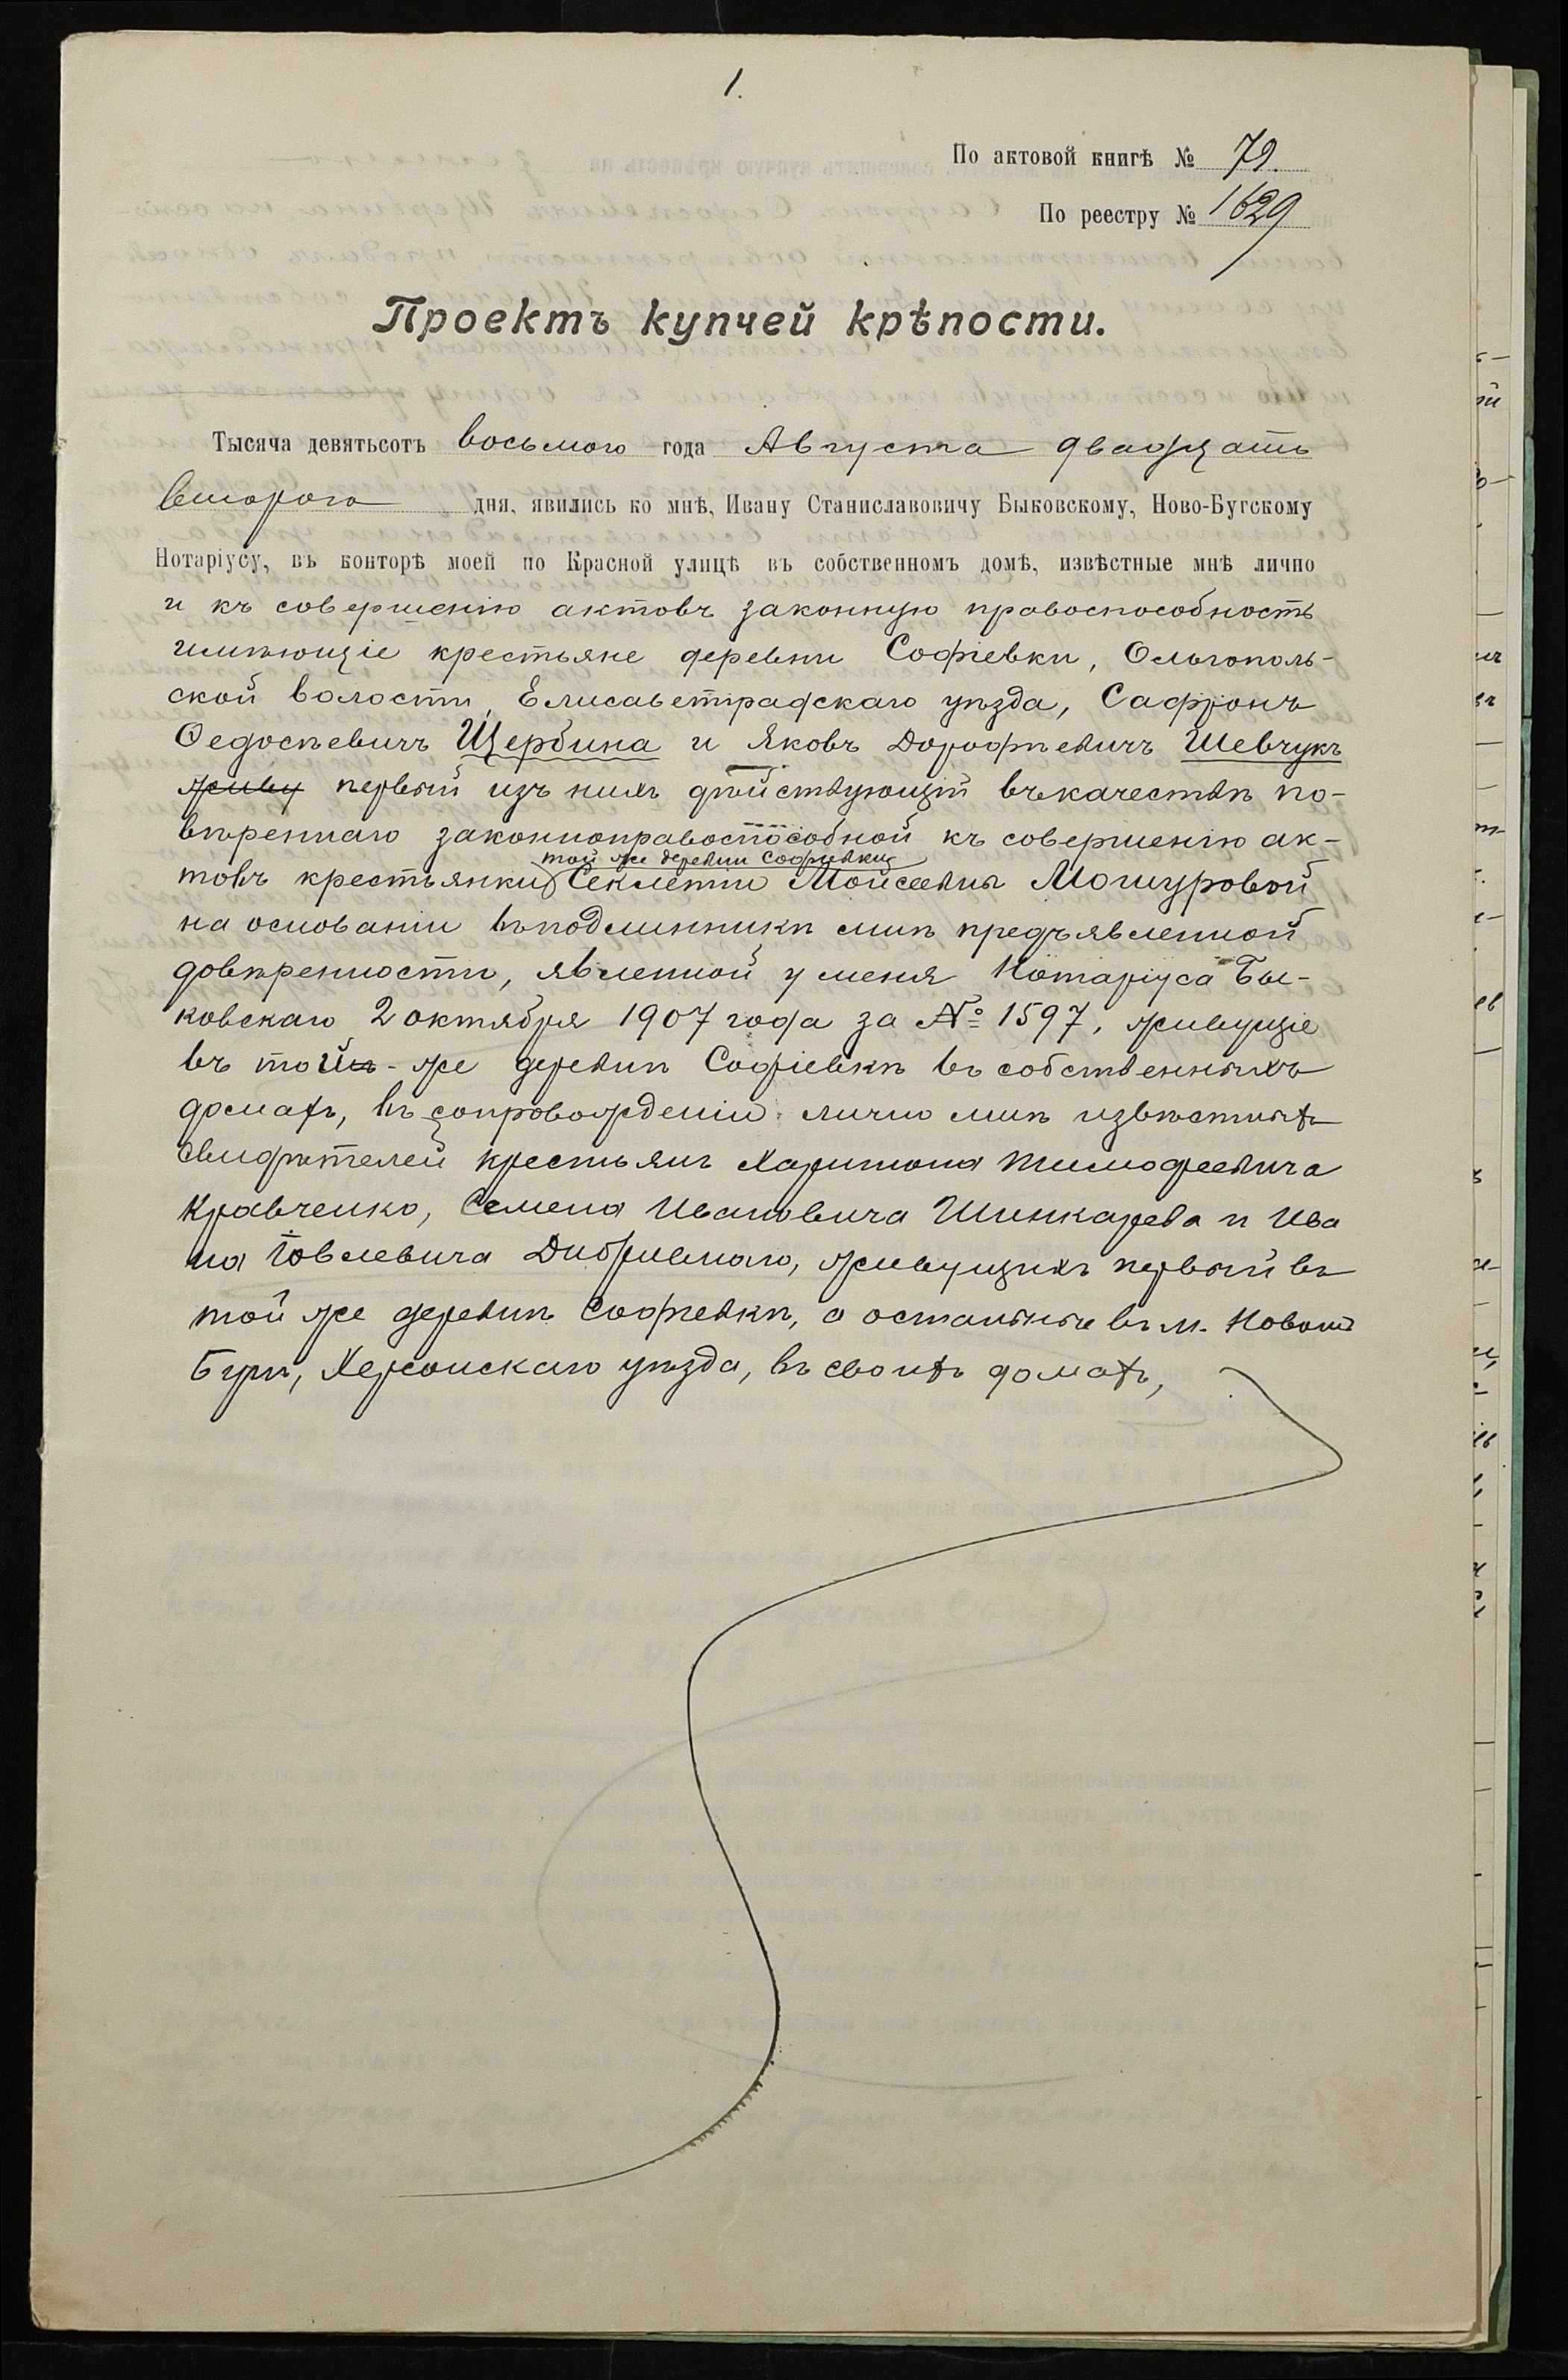 1.
По актовой книгѣ № 79.
По реестру № 1629
Проектъ купчей крѣпости.
Тысяча девятьсотъ восьмого года Августа двадцать
второго дня, явились ко мнѣ, Ивану Станиславовичу Быковскому, Ново-Бугскому
Нотаріусу, въ конторѣ моей по Красной улицѣ въ собственномъ домѣ, извѣстные мнѣ лично
и къ совершенію актовъ законную правоспособность
имѣющіе крестьяне деревни Софіевки, Ольгополь-
ской волости, Елисаветградскаго уѣзда, Сафронъ
Ѳедосѣевичъ Щербина и Яковъ Дорофѣевичъ Шевчукъ
живу первый изъ нихъ дѣйствующій въ качествѣ по-
вѣреннаго законноправоспособной къ совершенію ак-
той же деревни Софіевки
товъ крестьянки Секлетіи Мойсеевны Мошуровой
на основаніи въ подлинникѣ мнѣ предъявленной
довѣренности, явленной у меня Нотаріуса Бы-
ковскаго 2 октября 1907 года за № 1597, живущіе
въ той-же деревнѣ Софіевкѣ въ собственныхъ
домахъ, въ сопровожденіи лично мнѣ извѣстныхъ
свидѣтелей крестьянъ Харитона Тимофеевича
Кравченко, Семена Ивановича Шинкарева и Ива
на Іовлевича Дибривнаго, живущихъ первый въ
той же деревнѣ Софіевкѣ, а остальные въ м. Новомъ
Бугѣ, Херсонскаго уѣзда, въ своихъ домахъ,